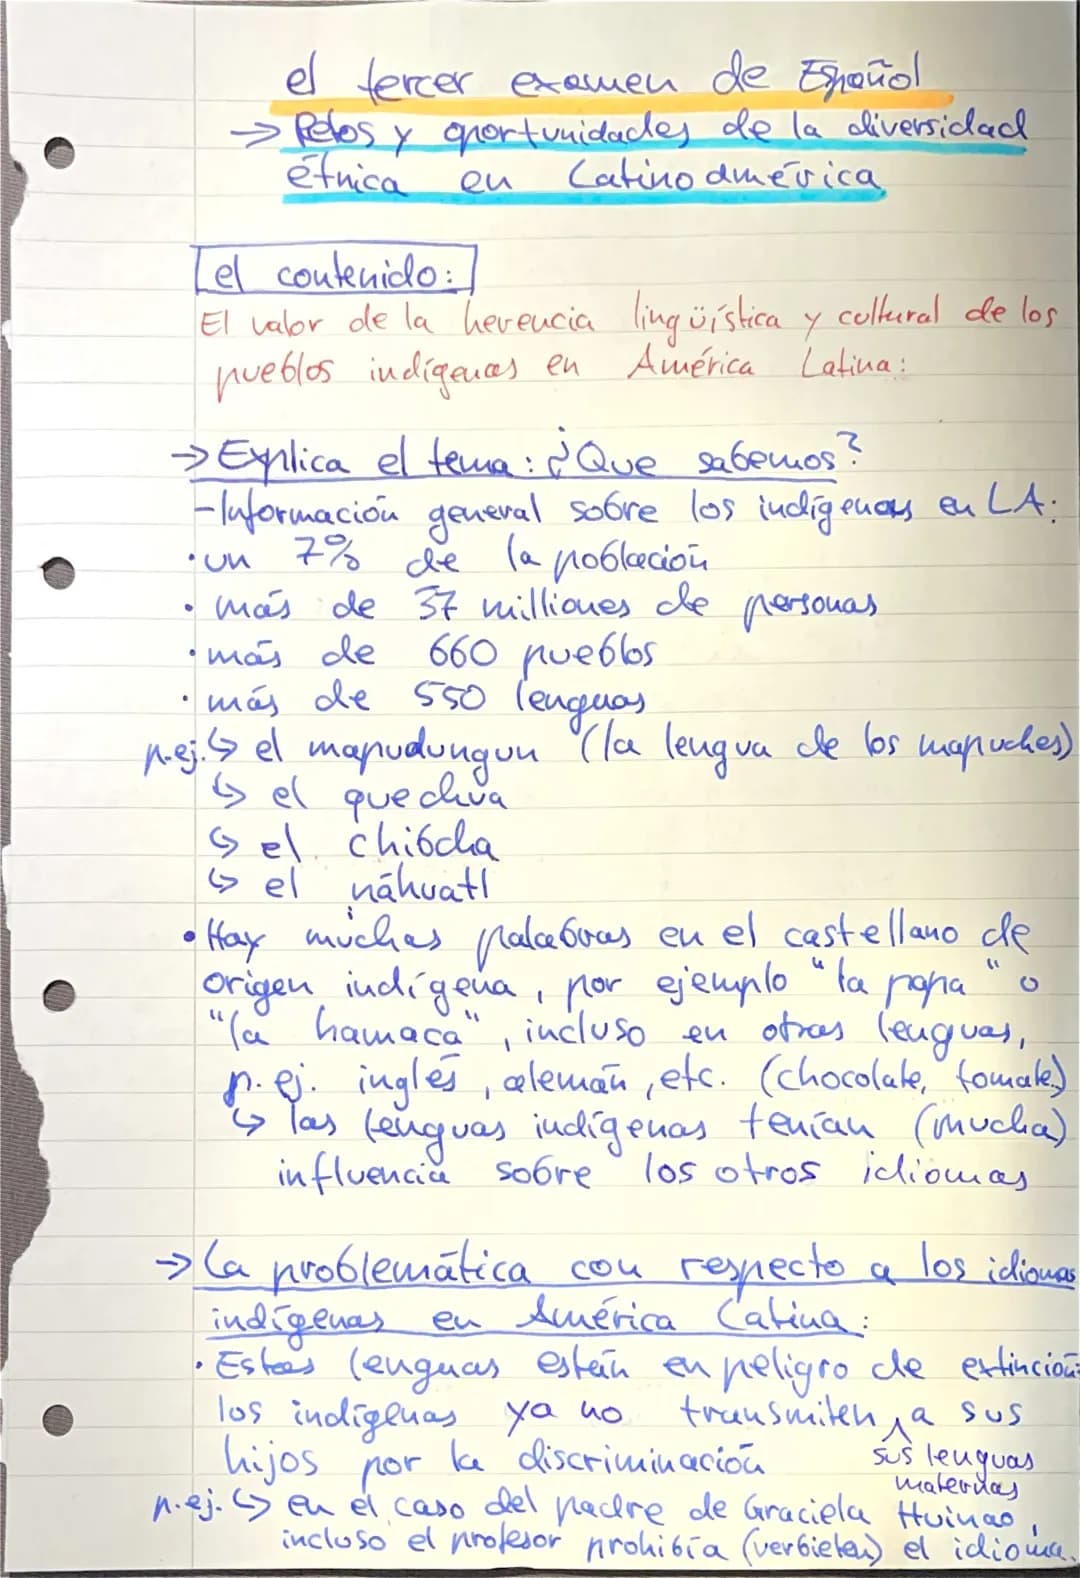 el tercer examen de Español
→ Retos y oportunidades de la diversidad
étnica en Latinoamérica
el contenido:
El valor de la herencia lingüística y cultural de los
pueblos indígenas en América Latina:
→ Explica el tema: ¿Que sabemos?
- Información general sobre los indígenas en LA:
• un 7% de la población
• más de 37 milliones de personas
• más de 660 pueblos
• más de 550 lenguas
p.ej. ↳ el mapudungun (la lengua de los mapuches)
↳ el quechua
↳ el chibcha
↳ el náhuatl
• Hay muchas palabras en el castellano de
origen indígena, por ejemplo "la papa" o
"la hamaca", incluso en otras lenguas,
p. ej. inglés, alemán, etc. (chocolate, tomate)
↳ las lenguas indígenas tenían (mucha)
influencia sobre los otros idiomas
→ La problemática con respecto a los idiomas
indígenas en América Latina:
• Estas lenguas están en peligro de extinción:
los indígenas ya no transmiten a sus
hijos por la discriminación sus lenguas
maternas
p.ej. ↳ en el caso del padre de Graciela Huinao,
incluso el profesor prohibía (verbieten) el idioma.